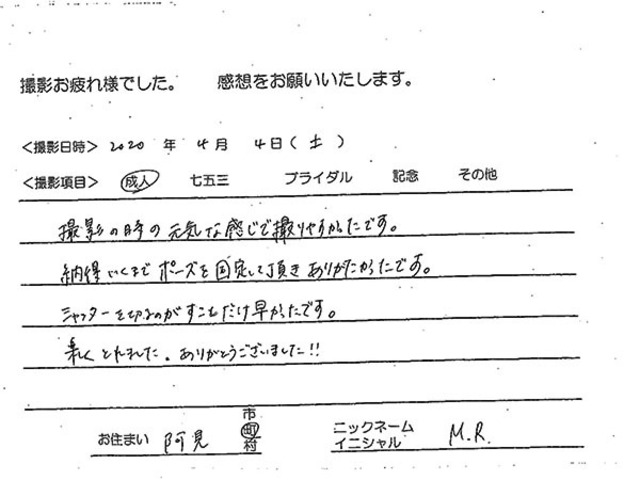 撮影お疲れ様でした。 感想をお願いいたします。
<撮影日時> 2020 年 4月 4日(土)
<撮影項目> 成人 七五三 ブライダル 記念 その他
撮影の時の元気な感じで撮りやすかったです。
納得いくまでポーズを固定して頂きありがたかったです。
シャッターを切るのがすこしだけ早かったです。
楽しくとれました。ありがとうございました!!
市
お住まい 阿見 町 ニックネーム
村 イニシャル M.R.